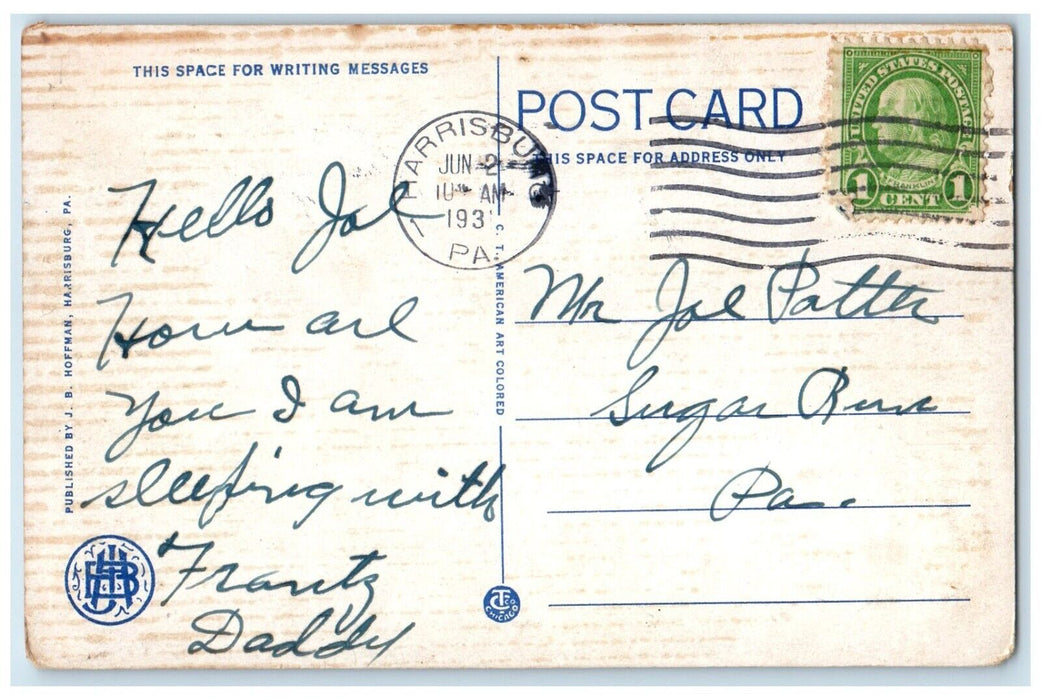 THIS SPACE FOR WRITING MESSAGES
POST CARD
THIS SPACE FOR ADDRESS ONLY
UNITED STATES POSTAGE
FRANKLIN
1 CENT 1
HARRISBURG
JUN 2
10 AM
193
PA.
Hello Joe
How are
you I am
sleeping with
Frantz
Daddy
Mr Joe Potter
Sugar Run
Pa.
PUBLISHED BY J. B. HOFFMAN, HARRISBURG, PA.
C. T. AMERICAN ART COLORED
CHICAGO